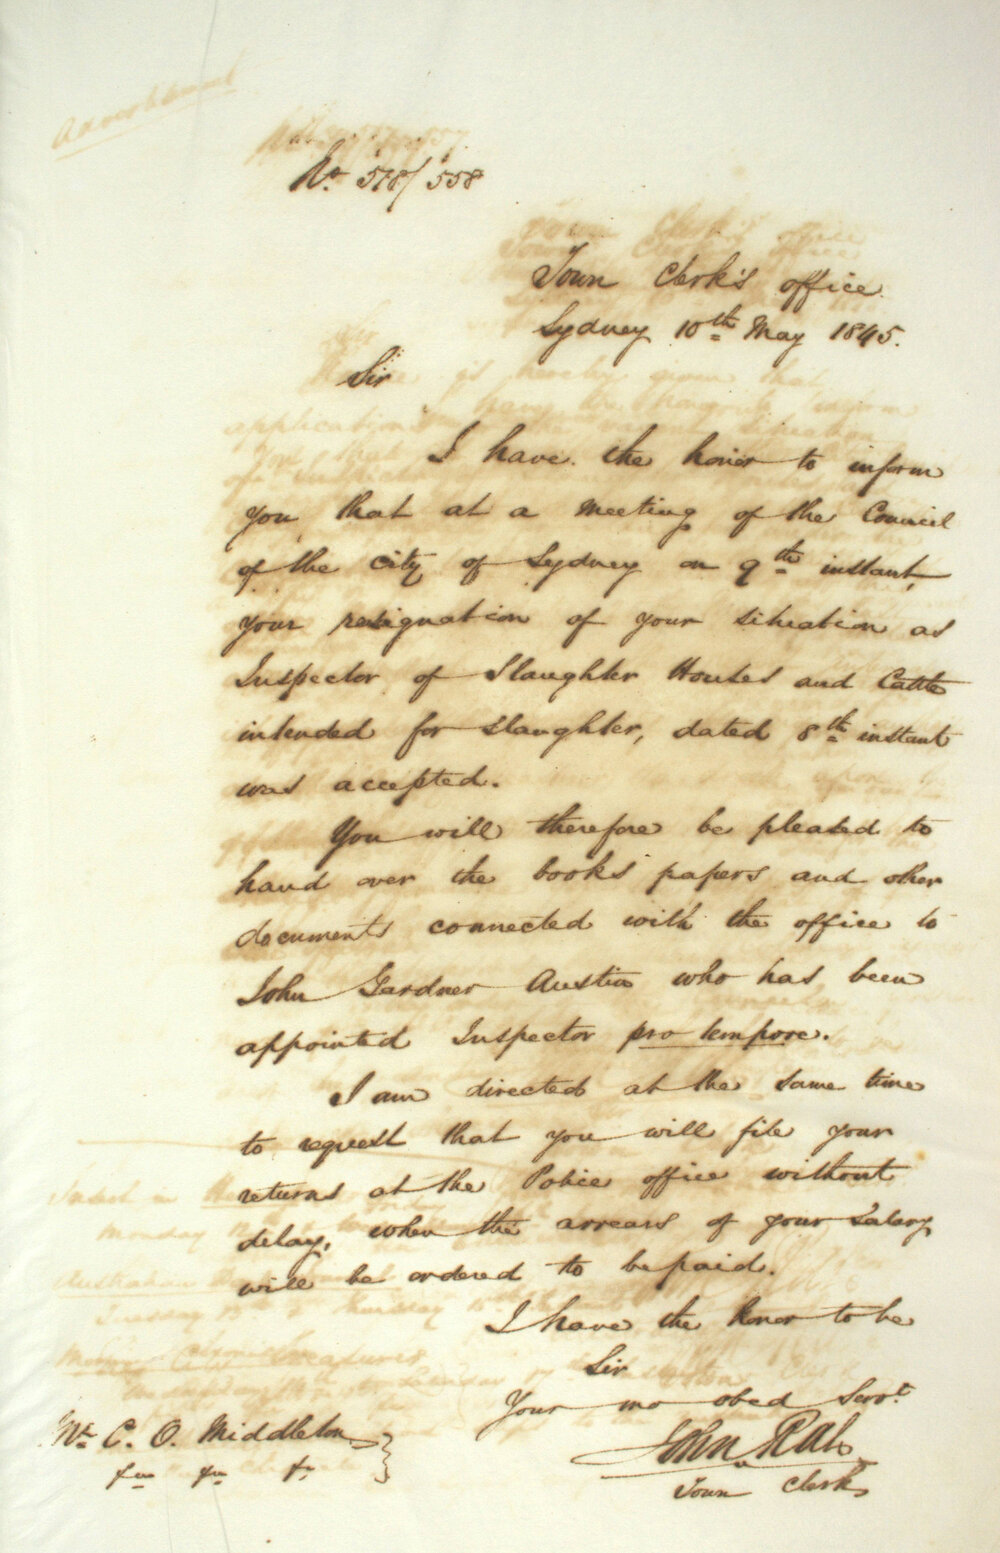 Advertisement
No. 578/558
Town Clerk's office
Sydney 10th May 1845.
Sir
I have the honor to inform
you that at a meeting of the Council
of the City of Sydney on 9th instant,
your resignation of your situation as
Inspector of Slaughter Houses and Cattle
intended for slaughter, dated 8th instant
was accepted.
You will therefore be pleased to
hand over the books papers and other
documents connected with the office to
John Gardner Austin who has been
appointed Inspector pro tempore.
I am directed at the same time
to request that you will file your
returns at the Police office without
delay, when the arrears of your Salary
will be ordered to be paid.
I have the honor to be
Sir
Your mo obed Servt.
John Rae
Town Clerk
Mr C. O. Middleton